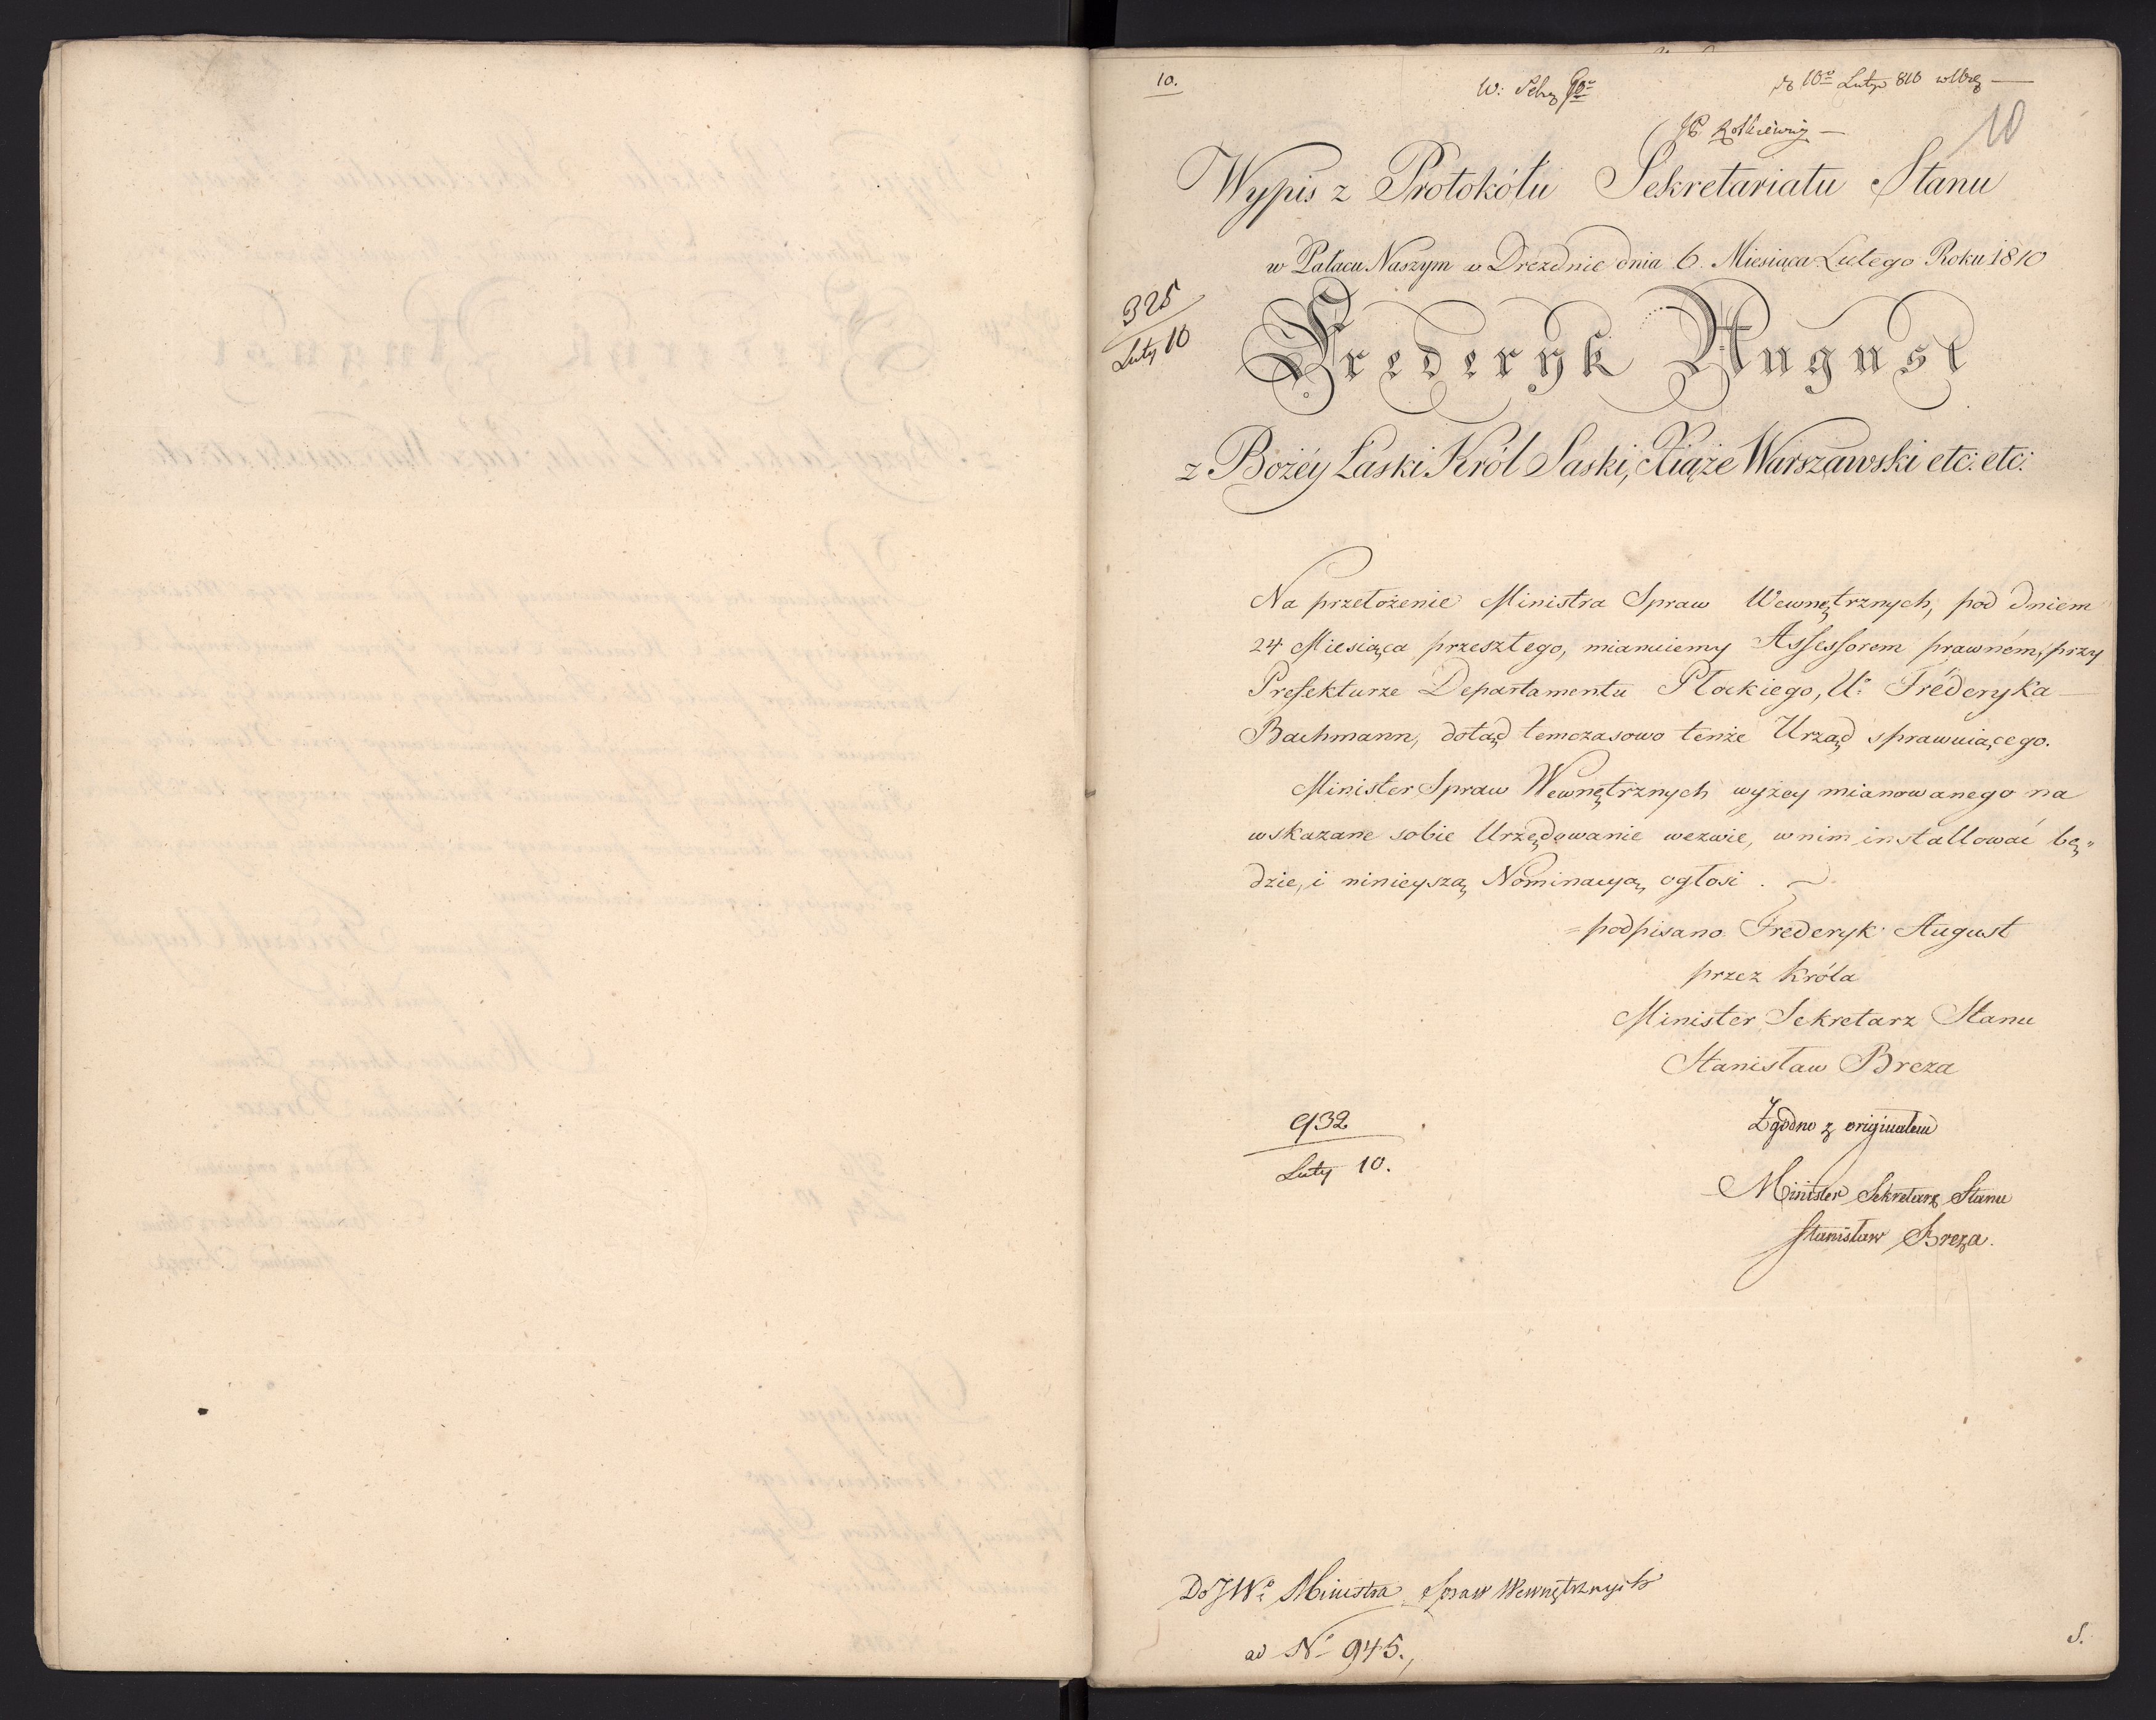 10.
d. 10º Luty 810
10
Wypis z Protokółu Sekretariatu Stanu
w Pałacu Naszym w Dreznie dnia 6. Miesiąca Lutego Roku 1810
325
Luty 10
Frederyk August
z Bożéy Łaski Król Saski, Xiąże Warszawski etc: etc:
Na przełożenie Ministra Spraw Wewnętrznych, pod dniem
24 Miesiąca przeszłego, mianuiemy Assessorem prawném, przy
Prefekturze Departamentu Płockiego, U: Fréderyka
Bachmann, dotąd temczasowo tenże Urząd sprawuiącego.
Minister Spraw Wewnętrznych wyżey mianowanego na
wskazane sobie Urzędowanie wezwie, w nim installować bę„
dzie, i ninieyszą Nominacyą ogłosi.
= podpisano Frederyk August
przez Króla
Minister Sekretarz Stanu
Stanisław Breza
Zgodno z originałem
932
Luty 10.
Minister Sekretarz Stanu
Stanisław Breza.
Do JWº Ministra Spraw Wewnętrznych
ad Nº 945.,
S.